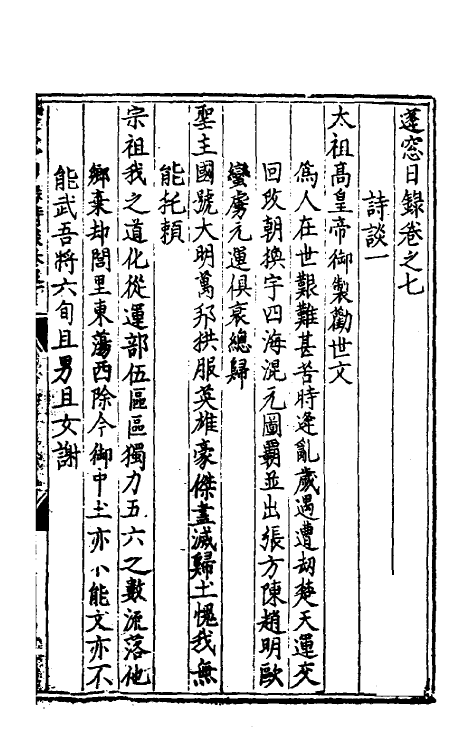 蓬窓日録卷之七
詩談一
太祖髙皇帝御製勸世文
爲人在世艱難甚苦時逢亂歲遇遭刼楚天運交
回改朝換宇四海混元圖覇並出張方陳趙明歐
蠻虜元運俱衰總歸
聖主國號大明萬邦拱服英雄豪傑盡滅歸土愧我無
能托頼
宗祖我之道化從運部伍區區獨力五六之數流落他
鄉棄却閭里東蕩西除今御中土亦小能文亦不
能武吾將六旬且男且女謝